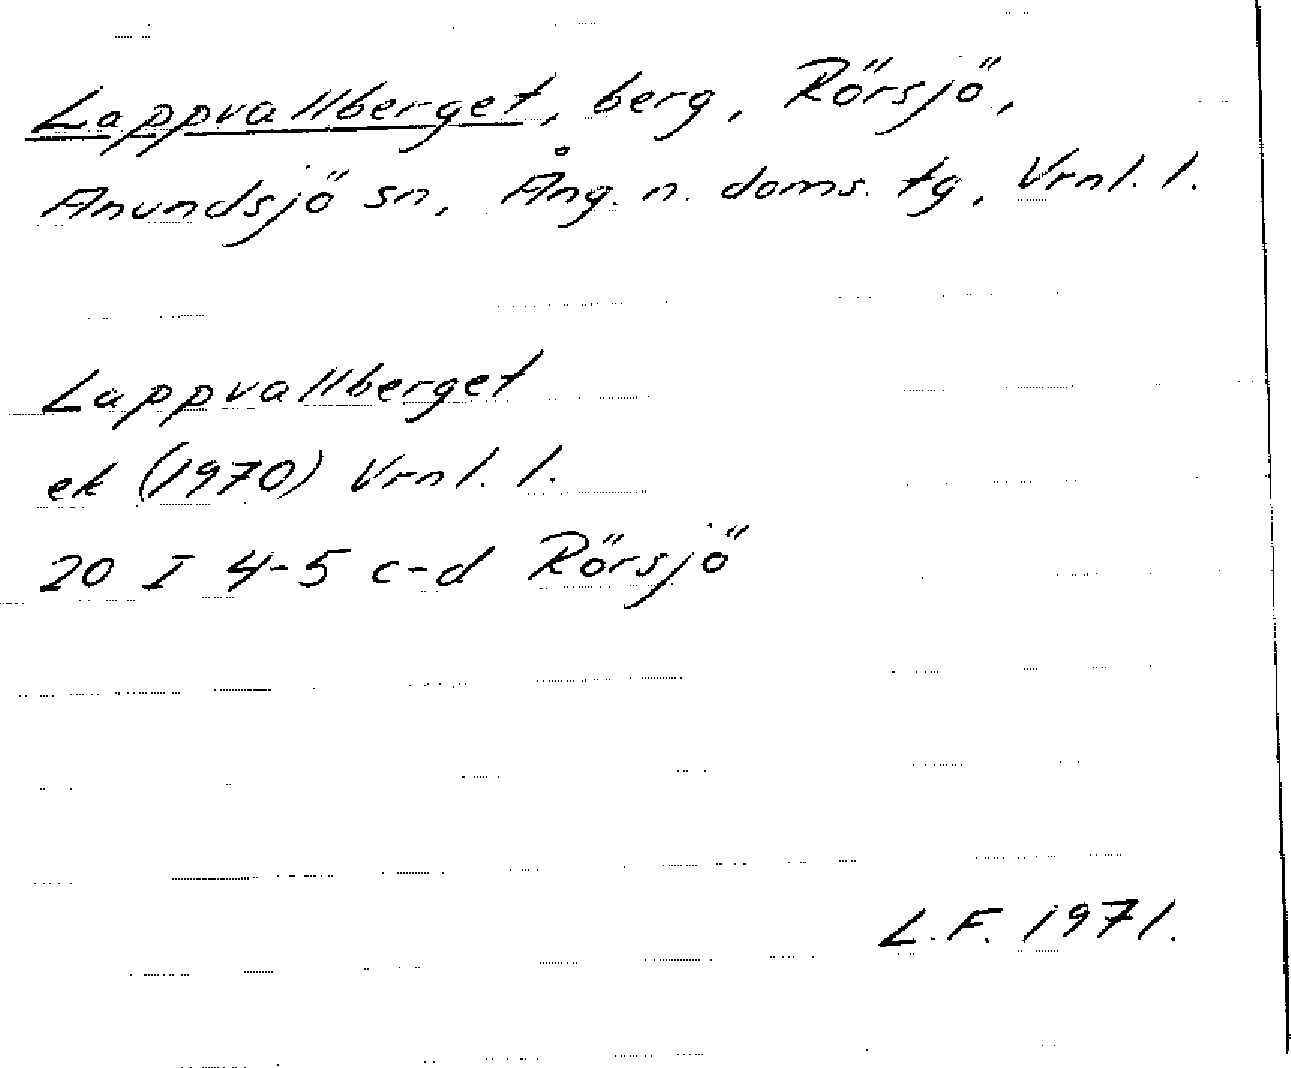 Lappvallberget, berg, Rörsjö,
Anundsjö sn, Ång. n. doms. tg, Vrnl. l.
Lappvallberget
ek (1970) Vrnl. l.
20 I 4-5 c-d Rörsjö
L.F. 1971.